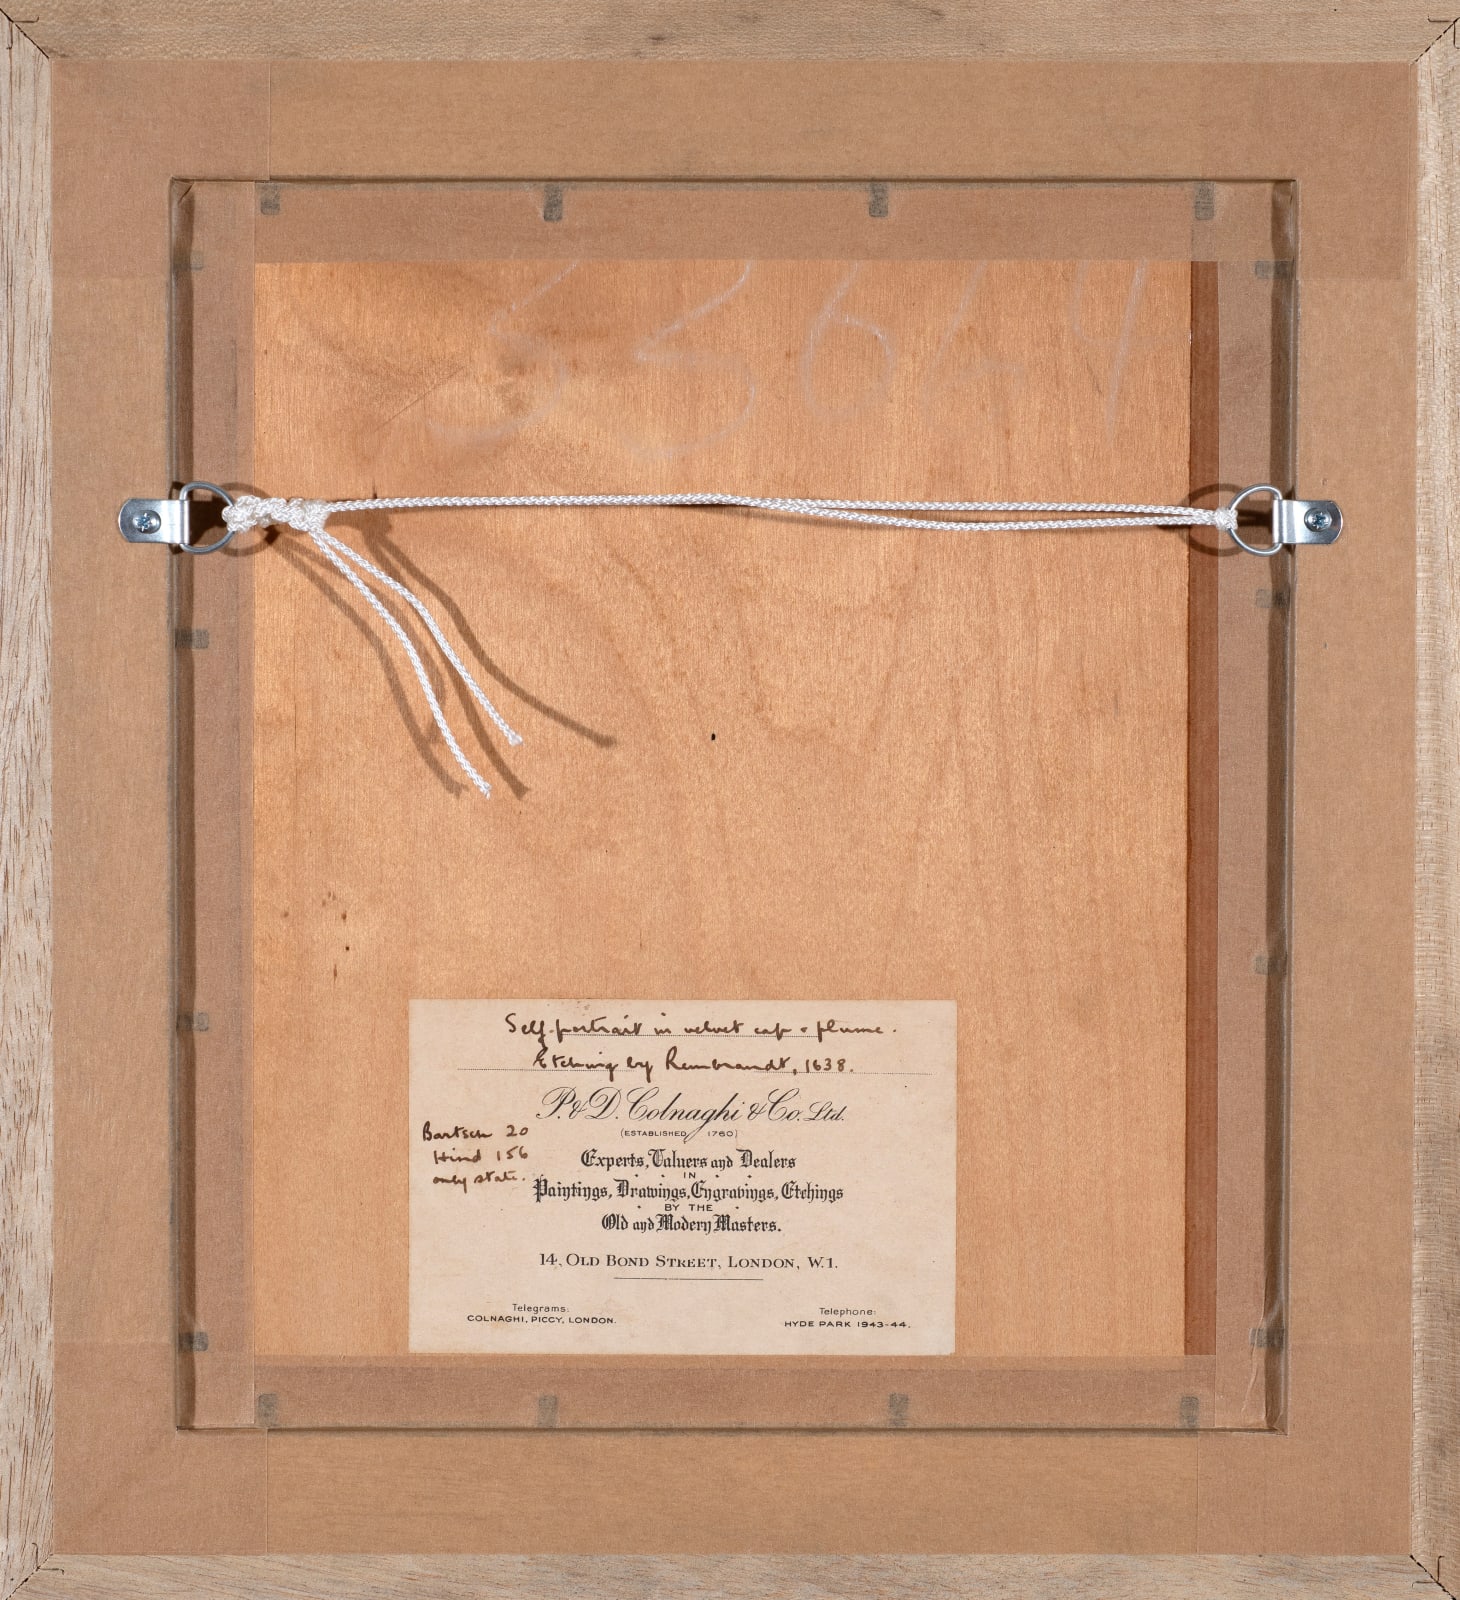 33644
Self-portrait in velvet cap & plume.
Etching by Rembrandt, 1638.
P. & D. Colnaghi & Co. Ltd.
(ESTABLISHED 1760)
Bartsch 20
Hind 156
only state.
Experts, Valuers and Dealers
IN
Paintings, Drawings, Engravings, Etchings
BY THE
Old and Modern Masters.
14, OLD BOND STREET, LONDON, W.1.
Telegrams:
COLNAGHI, PICCY, LONDON.
Telephone:
HYDE PARK 1943-44.